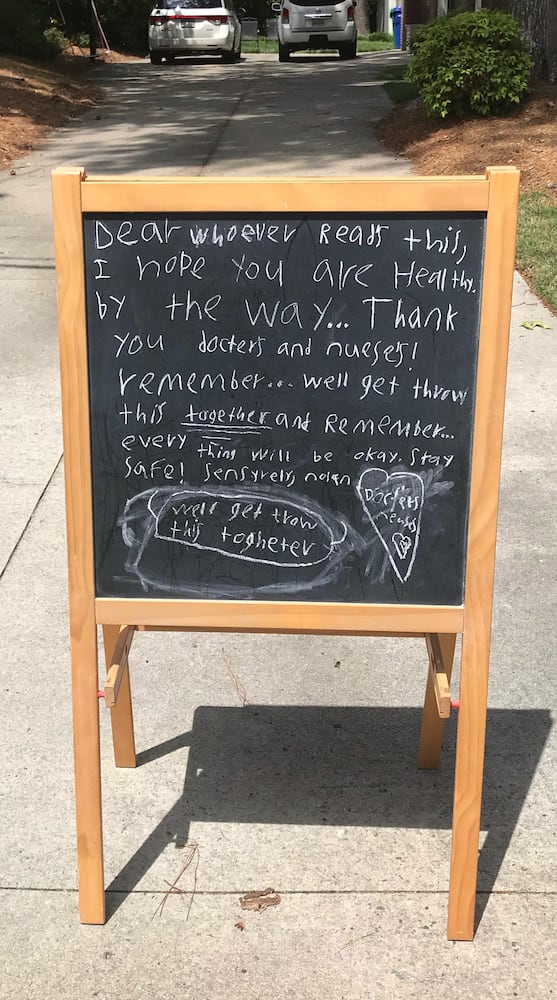 Dear whoever Reads this,
I hope you are Healthy.
by the way... Thank
you docters and nueses!
remember... well get throw
this together and Remember...
every thing will be okay. Stay
Safe! Sensyrely, nolan
well get throw
this togheter
Docters